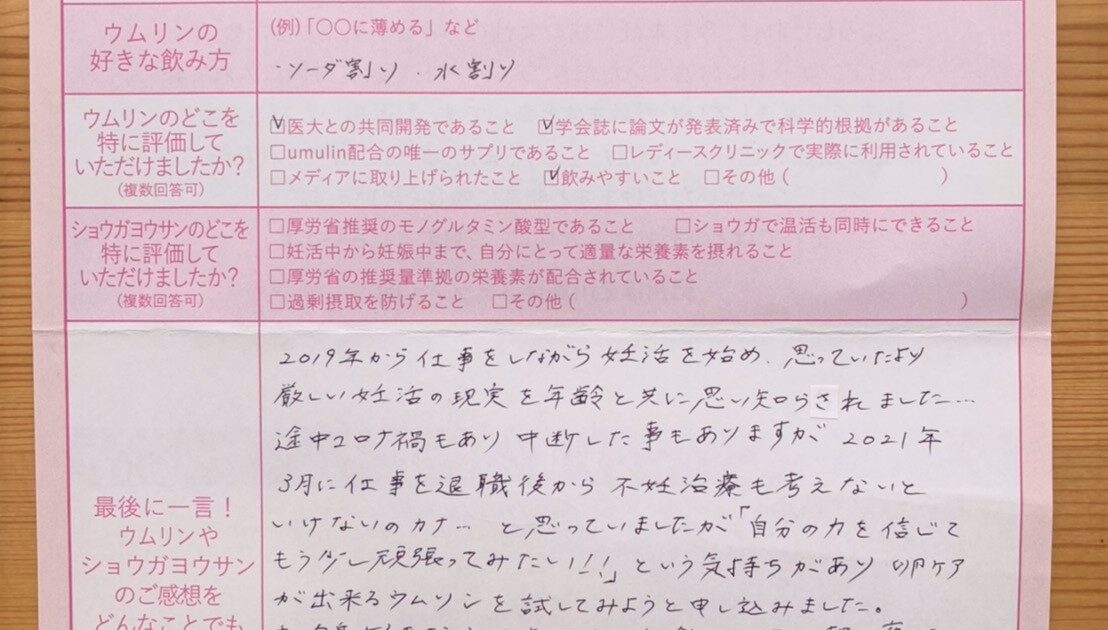 ウムリンの
好きな飲み方
(例)「〇〇に薄める」など
・ソーダ割り ・水割り
ウムリンのどこを
特に評価して
いただけましたか?
(複数回答可)
☑医大との共同開発であること ☑学会誌に論文が発表済みで科学的根拠があること
□umulin配合の唯一のサプリであること □レディースクリニックで実際に利用されていること
□メディアに取り上げられたこと ☑飲みやすいこと □その他( )
ショウガヨウサンのどこを
特に評価して
いただけましたか?
(複数回答可)
□厚労省推奨のモノグルタミン酸型であること □ショウガで温活も同時にできること
□妊活中から妊娠中まで、自分にとって適量な栄養素を摂れること
□厚労省の推奨量準拠の栄養素が配合されていること
□過剰摂取を防げること □その他( )
最後に一言!
ウムリンや
ショウガヨウサン
のご感想を
どんなことでも
2019年から仕事をしながら妊活を始め、思っていたより
厳しい妊活の現実を年齢と共に思い知らされました…
途中コロナ禍もあり中断した事もありますが2021年
3月に仕事を退職後から不妊治療も考えないと
いけないのカナ…と思っていましたが「自分の力を信じて
もう少し頑張ってみたい!!」という気持ちがあり卵ケア
が出来るウムリンを試してみようと申し込みました。